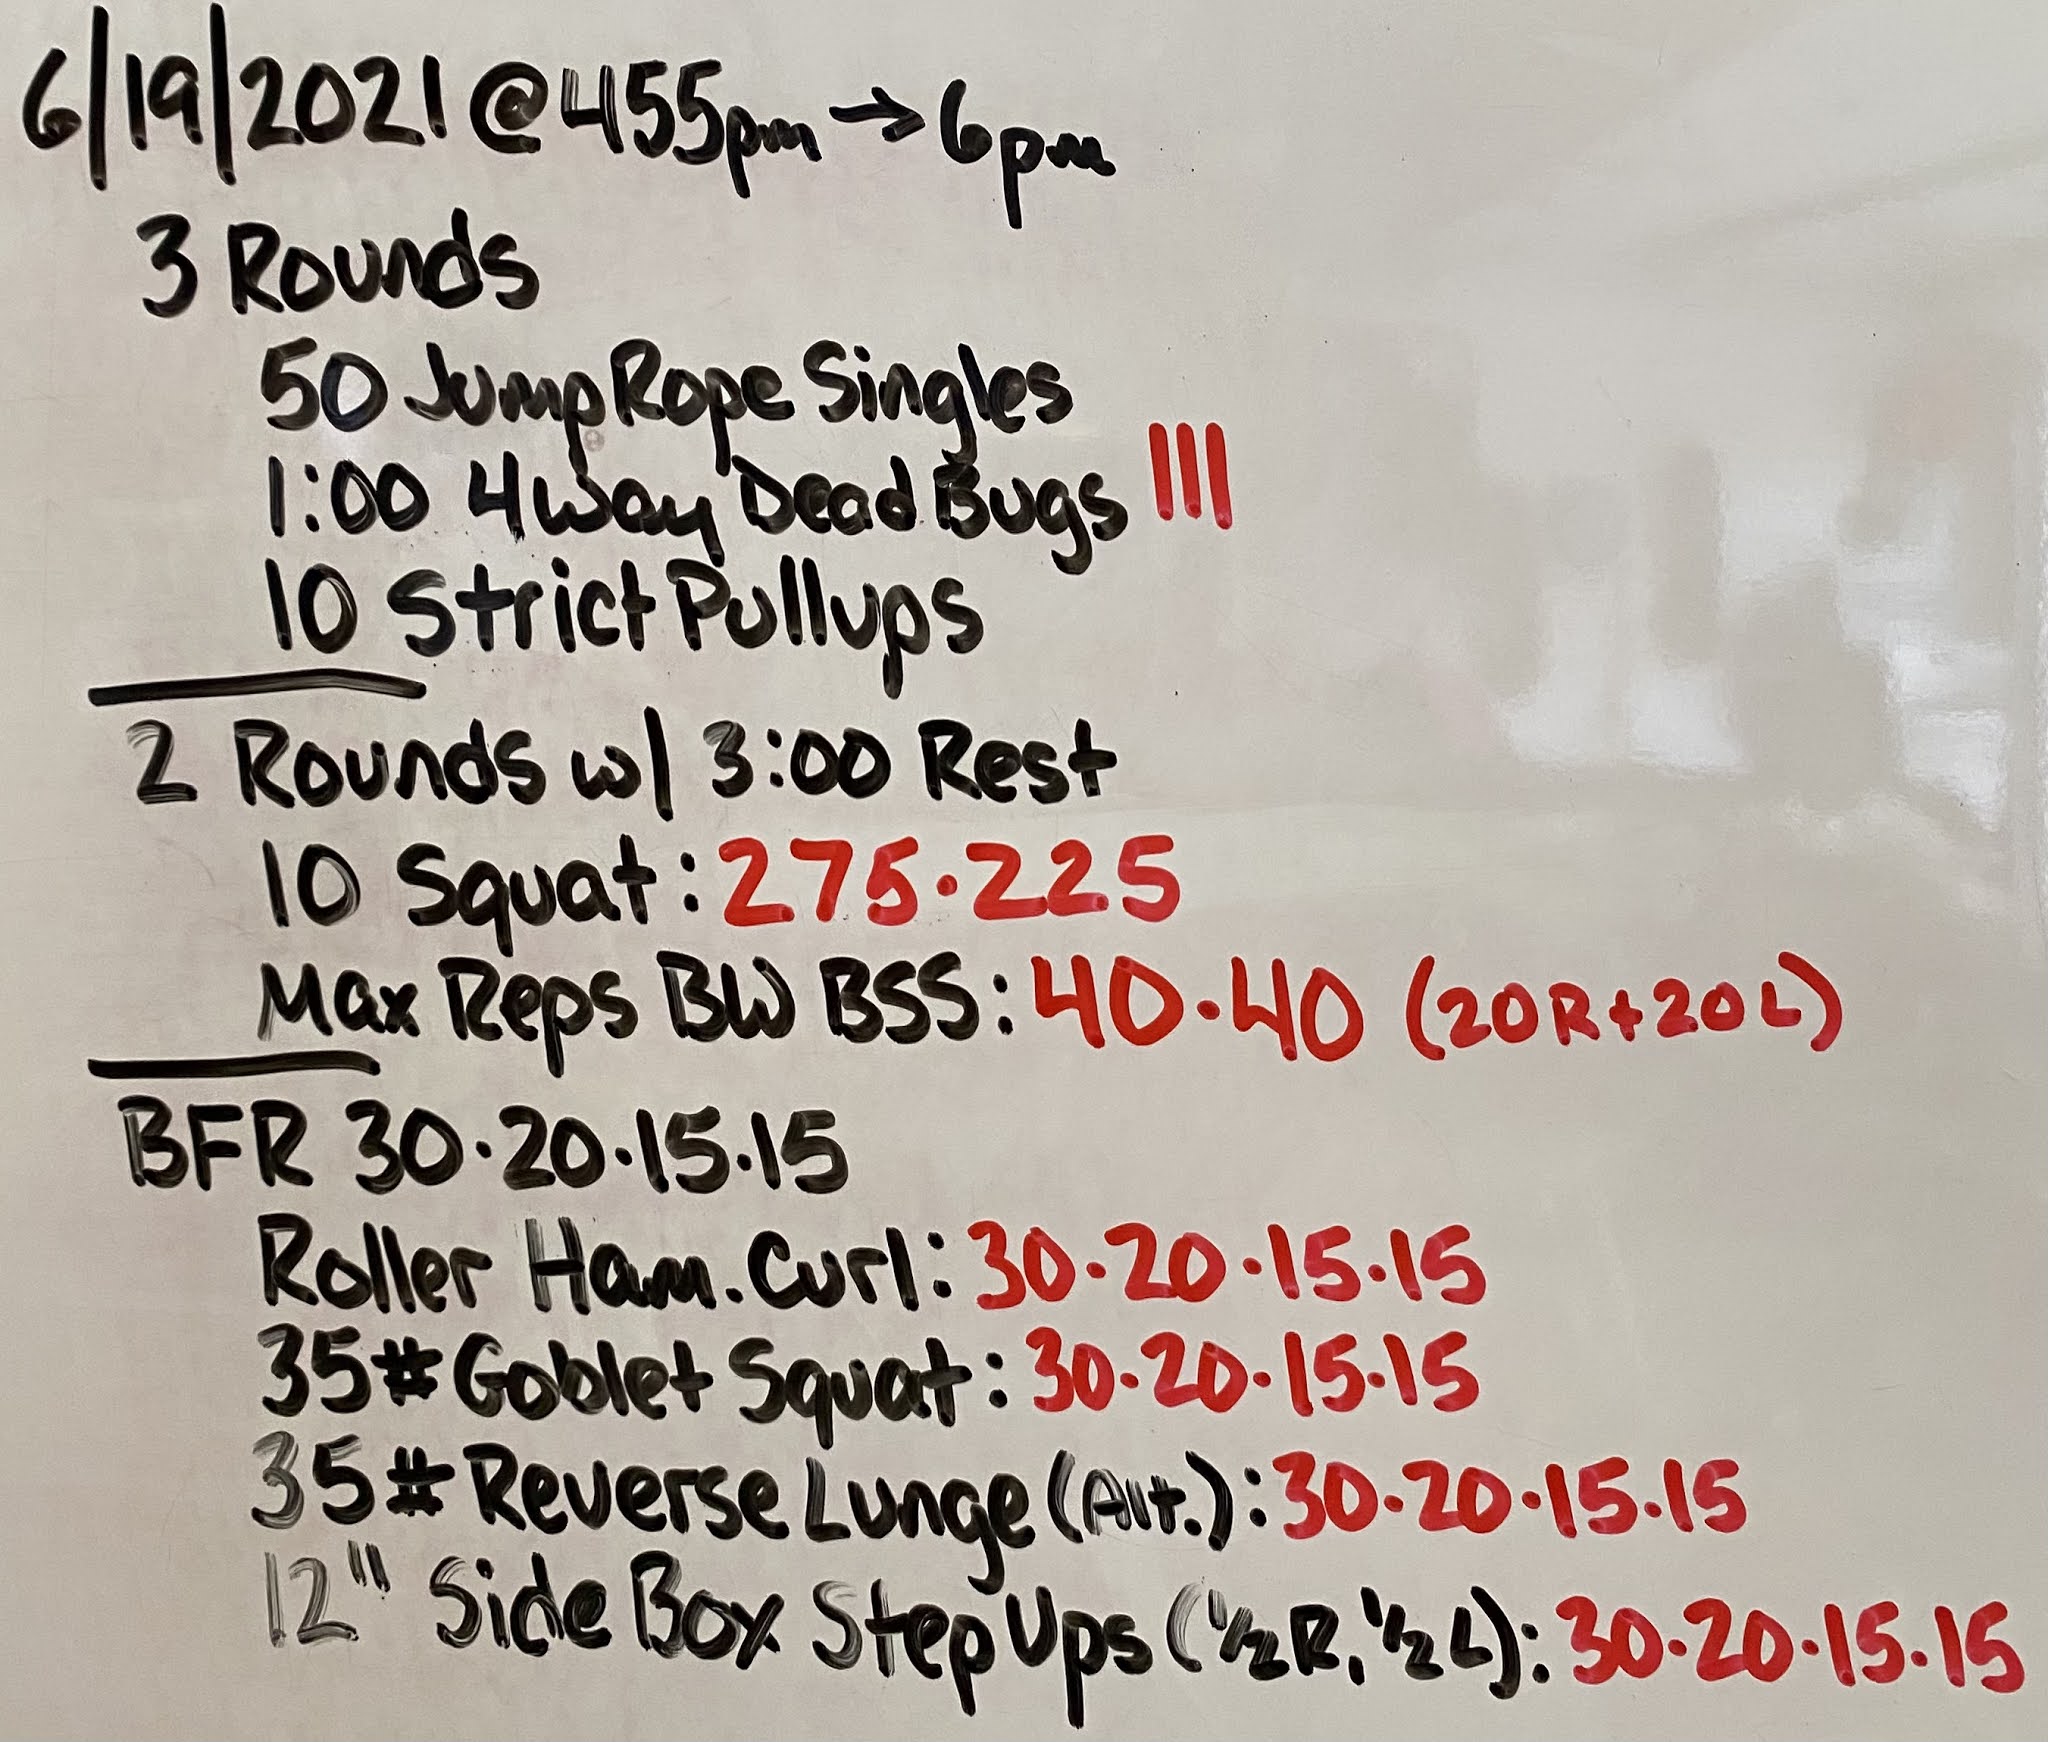 6/19/2021 @ 455pm → 6pm
3 Rounds
50 Jump Rope Singles
1:00 4way Dead Bugs |||
10 Strict Pullups
2 Rounds w/ 3:00 Rest
10 Squat: 275·225
Max Reps BW BSS: 40·40 (20R+20L)
BFR 30·20·15·15
Roller Ham. Curl: 30·20·15·15
35# Goblet Squat: 30·20·15·15
35# Reverse Lunge (Alt.): 30·20·15·15
12" Side Box Step Ups (1/2R, 1/2L): 30·20·15·15